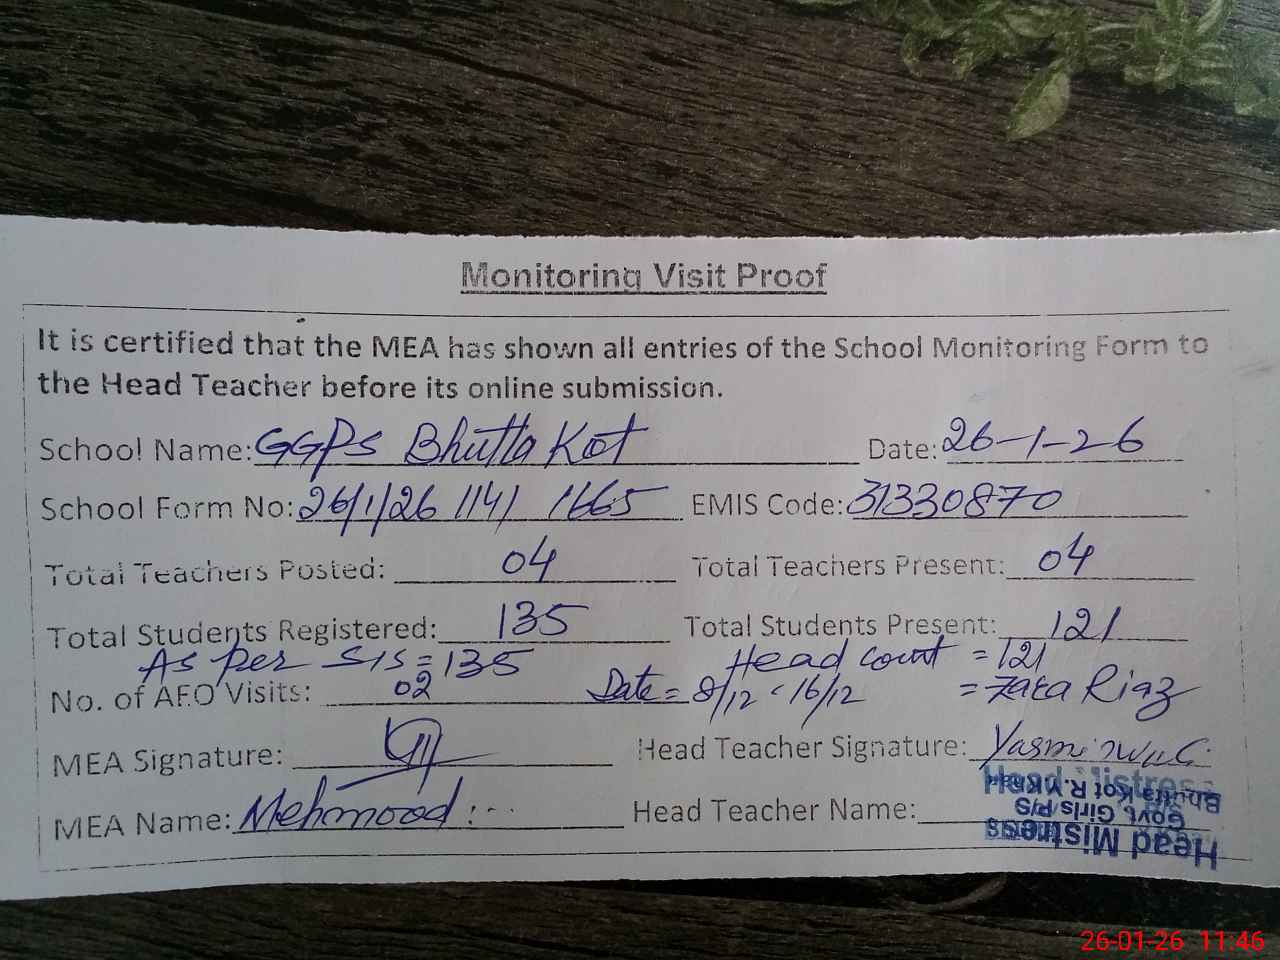 Monitoring Visit Proof
It is certified that the MEA has shown all entries of the School Monitoring Form to
the Head Teacher before its online submission.
School Name: GGPS Bhutta Kot Date: 26-1-26
School Form No: 26/1/26 1141 1665 EMIS Code: 31330870
Total Teachers Posted: 04 Total Teachers Present: 04
Total Students Registered: 135 Total Students Present: 121
As per SIS = 135 Head count = 121
No. of AEO Visits: 02 Date = 8/12 - 16/12 = Zara Riaz
MEA Signature: Head Teacher Signature:
MEA Name: Mehmood Head Teacher Name:
Head Mistress
Govt. Girls P/S
Bhutta Kot R.Y.Khan
Head Mistress
26-01-26 11:46